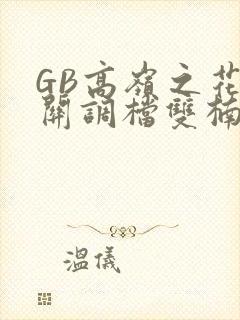 GB高嶺之花
開調檔雙楠
溫儀